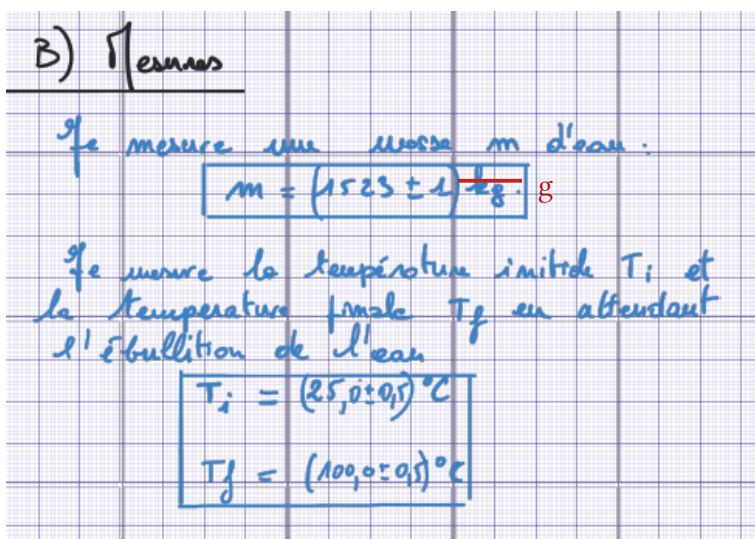 B) Mesures
Je mesure une masse m d'eau :
m = (1523 ± 1) kg. g
Je mesure la température initiale Ti et
la temperature finale Tf en attendant
l'ébullition de l'eau
Ti = (25,0 ± 0,5) °C
Tf = (100,0 ± 0,5) °C